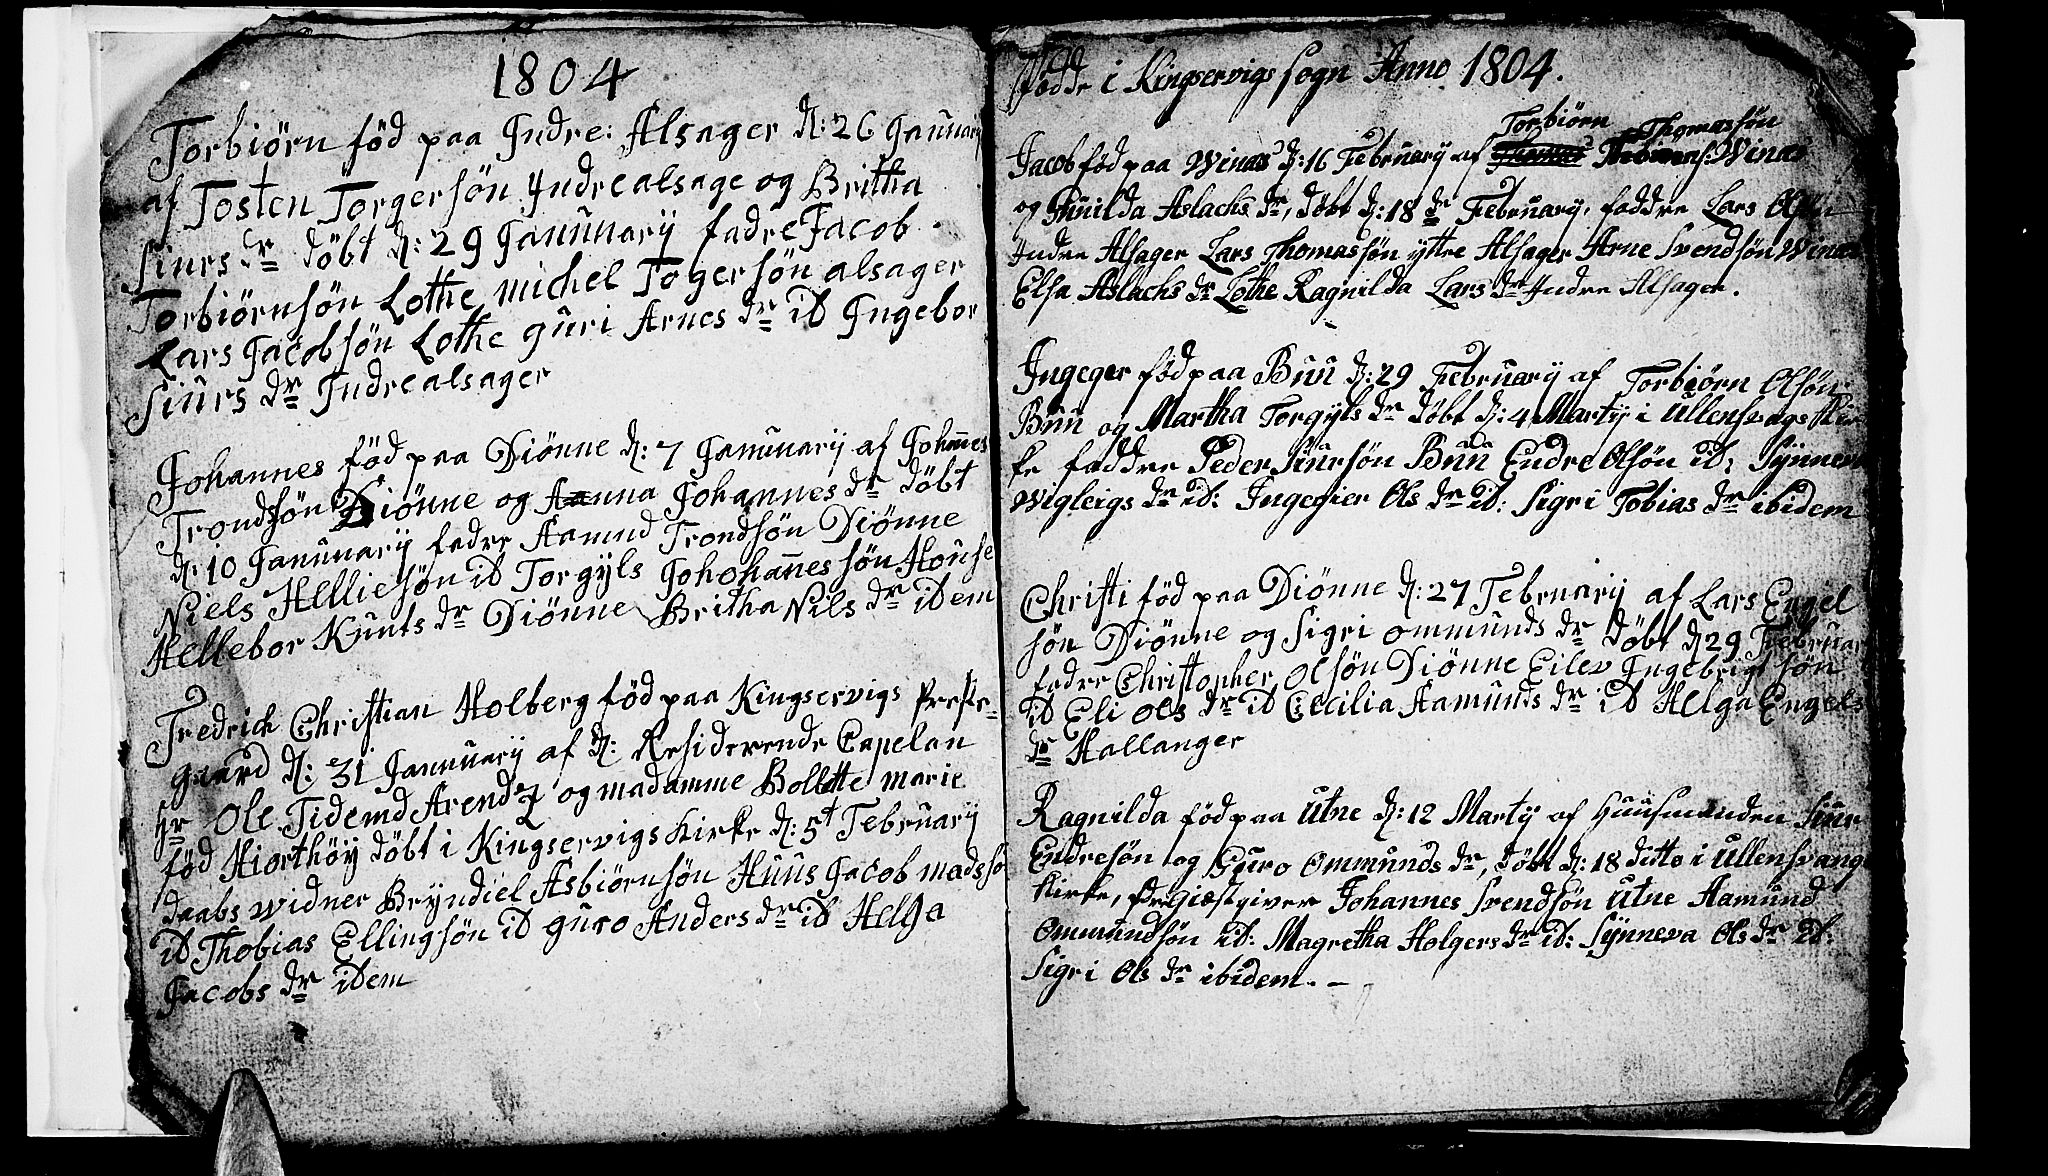 1804
Torbiörn föd paa Indre: Alsager d: 26 Januuary
af Tosten Torgersön Yndrealsage og Britha
Siurs dr döbt d: 29 Januuary fadre Jacob
Torbiörnsön Lothe, michel Togersön alsager
Lars Jacobsön Lothe guri Arnes dr id Ingebor
Siurs dr Indrealsager
Johannes föd paa Diönne d: 7 Januuary af Johannes
Trondsön Diönne og Anna Johannes dr döbt
d: 10 Januuary fadre Aamud Trondsön Diönne
Niels Helliesön id Torgÿls Johohannessön House
Hellebor Kunts dr Diönne Britha Nils dr idem
Fredrich Christian Holberg föd paa Kingservigs Preste-
gaard d: 31 Januuary af d: Residerende Capelan
Hr Ole Tidemd Arendz og madamme Bollette marie
föd Hiorthöÿ döbt i Kingservigs Kirke d: 5t Februarÿ
daabs widner Brÿndiel Asbiörnsön Huus Jacob madssö
id Thobias Ellingsön id guro Anders dr id Helga
Jacobs dr idem
Födde i Kingservigs sogn Anno 1804.
Torbiörn Thomassön
Jacob föd paa Winæs d: 16 Februarÿ af Winæs
og Gunilda Aslachs dr, döbt d: 18 de Februarÿ, faddre Lars Olsön
Indre Alsager Lars Thomassön ÿttre Alsager Arne Svendsön Winæs
Elsa Aslachs dr Lothe Ragnilda Lars dr Indre Alsager.
Ingeger föd paa Buu d: 29 Februarÿ af Torbiörn Olsön
Buu og Martha Torgÿls dr döbt d: 4 Martÿ i Ullensvags Kir
ke faddre Peder Siursön Buu Endre Olsön id: Sÿnneva
Wigleigs dr id: Ingegier Ols dr id: Sigri Tobias dr ibidem
Christi föd paa Diönne d: 27 Februarÿ af Lars Engel
sön Diönne og Sigri ommunds dr döbt d 29 Februar
fadre Christopher Olsön Diönne Eilev Ingebrigtsön
id Eli Ols dr id Cicilia Aamunds dr id Helga Engels
dr Hallanger
Ragnilda föd paa Utne d: 12 Martÿ af Huusmanden Siur
Endresön og Guro Ommunds dr, döbt d: 18 ditto i Ullensvang
Kirke, Giæstgiver Johannes Svendsön Utne Aamund
Ommundsön id: Magretha Holgers dr id: Sÿnneva Ols dr id:
Sigri Ols dr ibidem. -